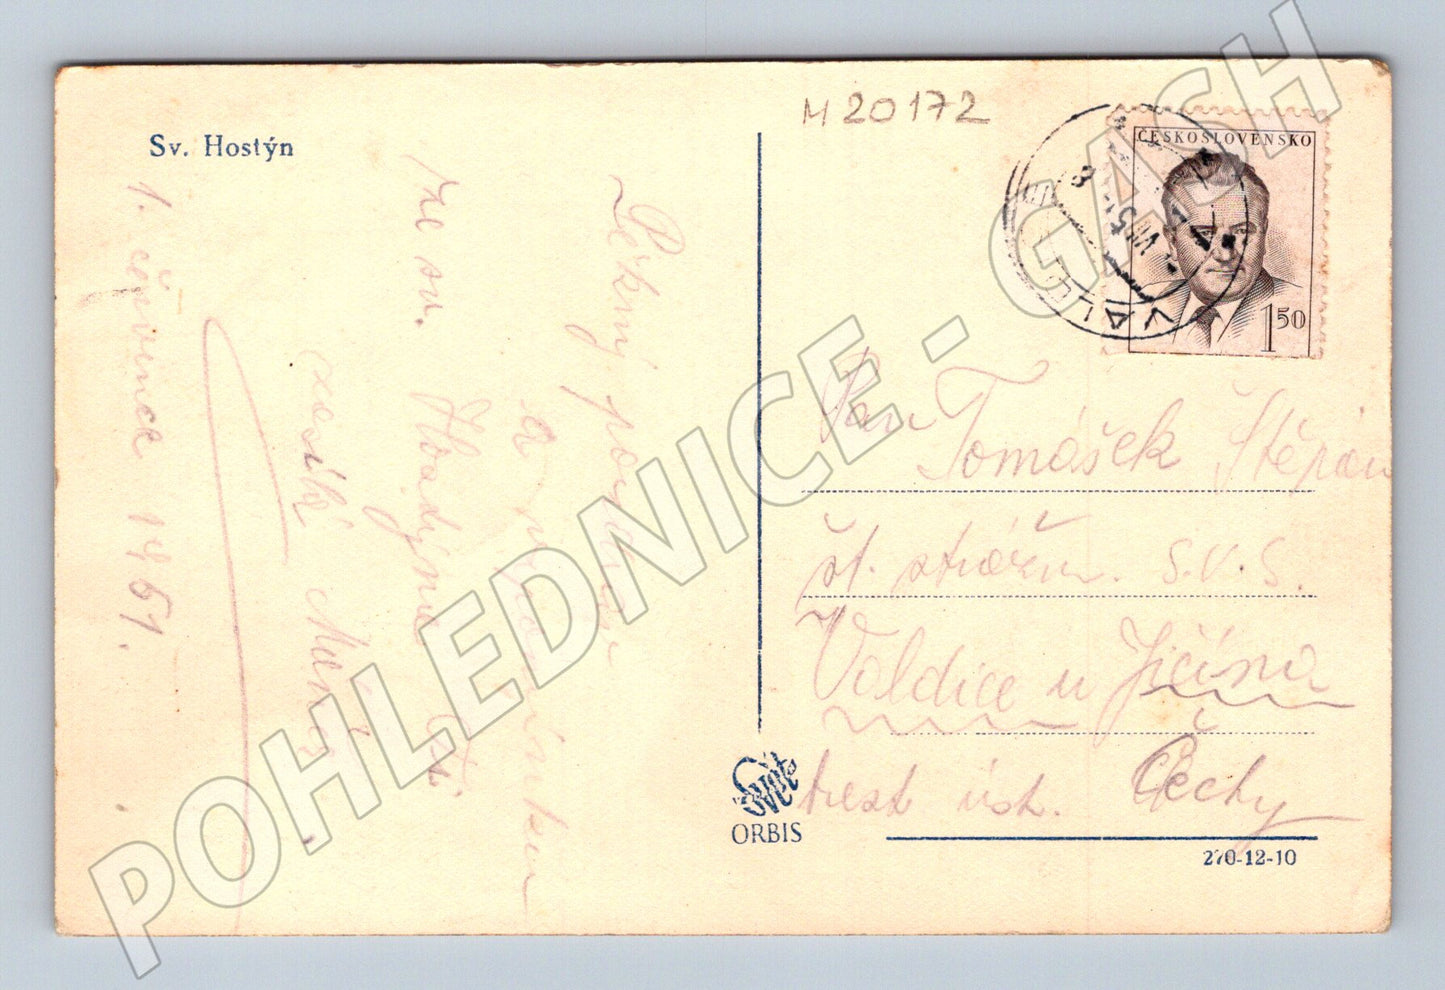 Sv. Hostýn
M 20172
ČESKOSLOVENSKO
1 50
VALD
Pěkný pozdrav
a
ze sv. Hostýna
1. července 1951.
Pan
Tomášek Štěpán
st. strážm. S.V.S.
Valdice u Jičína
trest. úst. Čechy
Svět
ORBIS
270-12-10
POHLEDNICE - GASH